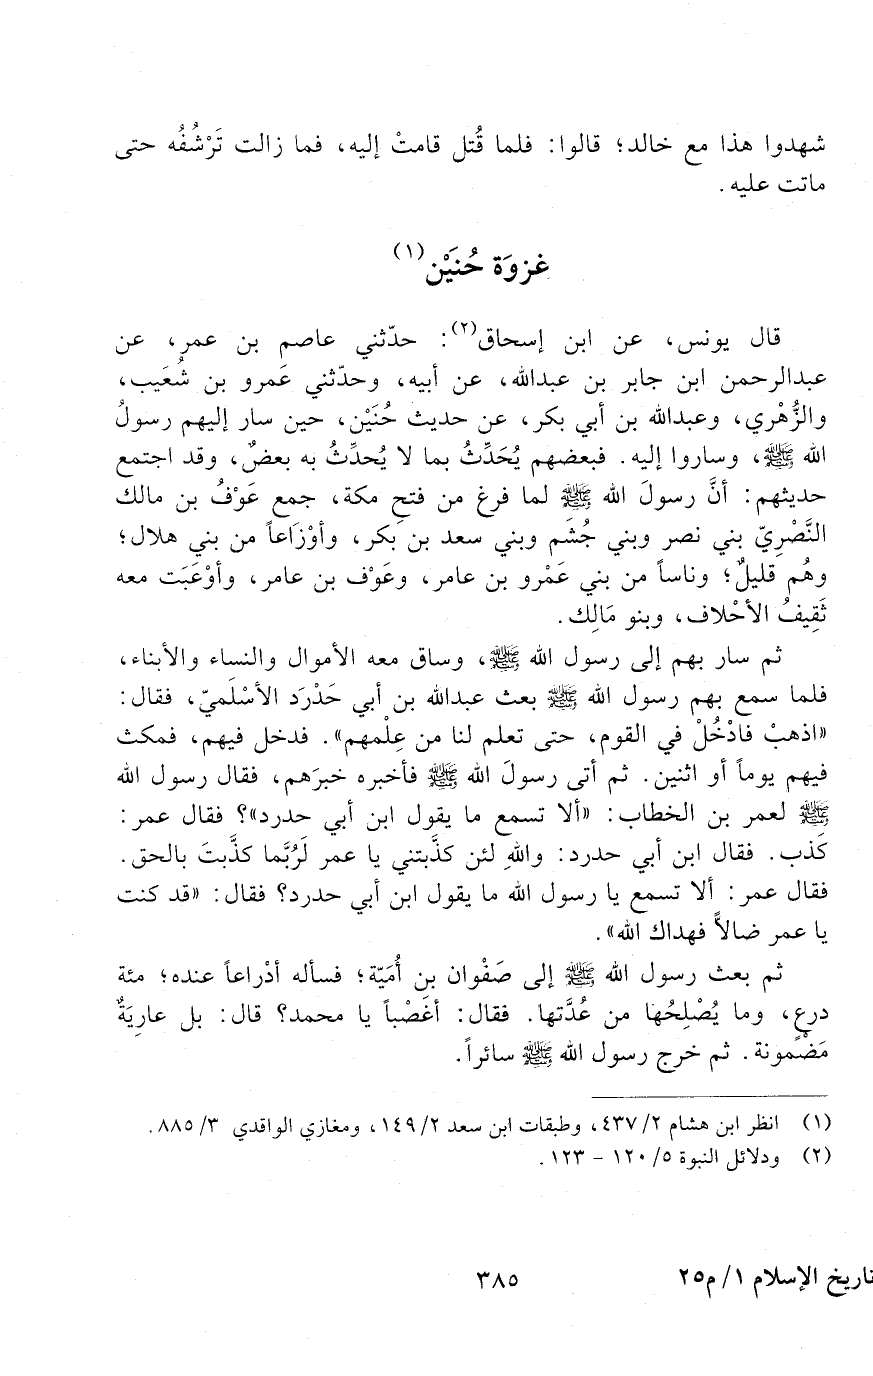 شهدوا هذا مع خالد؛ قالوا: فلما قُتل قامتْ إليه، فما زالت تَرْشُفُه حتى
ماتت عليه.
غزوَة حُنَيْن(١)
قال يونس، عن ابن إسحاق(٢): حدّثني عاصم بن عمر، عن
عبدالرحمن ابن جابر بن عبدالله، عن أبيه، وحدّثني عَمرو بن شُعَيب،
والزُّهْري، وعبدالله بن أبي بكر، عن حديث حُنَيْن، حين سار إليهم رسولُ
الله ﷺ، وساروا إليه. فبعضهم يُحَدِّثُ بما لا يُحدِّثُ به بعضٌ، وقد اجتمع
حديثهم: أنَّ رسولَ الله ﷺ لما فرغ من فتحِ مكة، جمع عَوْفُ بن مالك
النَّصْرِيّ بني نصر وبني جُشَم وبني سعد بن بكر، وأوْزَاعاً من بني هلال؛
وهُم قليلٌ؛ وناساً من بني عَمْرو بن عامر، وعَوْف بن عامر، وأوْعَبَت معه
ثَقِيفُ الأحْلاف، وبنو مَالِك.
ثم سار بهم إلى رسول الله ﷺ، وساق معه الأموال والنساء والأبناء،
فلما سمع بهم رسول الله ﷺ بعث عبدالله بن أبي حَدْرَد الأسْلَميّ، فقال:
«اذهبْ فادْخُلْ في القوم، حتى تعلم لنا من عِلْمهم». فدخل فيهم، فمكث
فيهم يوماً أو اثنين. ثم أتى رسولَ الله ﷺ فأخبره خبرَهم، فقال رسول الله
ﷺ لعمر بن الخطاب: «ألا تسمع ما يقول ابن أبي حدرد»؟ فقال عمر:
كَذب. فقال ابن أبي حدرد: واللهِ لئن كذَّبتني يا عمر لَرُبَّما كذَّبتَ بالحق.
فقال عمر: ألا تسمع يا رسول الله ما يقول ابن أبي حدرد؟ فقال: «قد كنت
يا عمر ضالاًّ فهداك الله».
ثم بعث رسول الله ﷺ إلى صَفْوان بن أُمَيّة؛ فسأله أدْراعاً عنده؛ مئة
درعٍ، وما يُصْلِحُها من عُدَّتها. فقال: أغَصْباً يا محمد؟ قال: بل عاريَةٌ
مَضْمونة. ثم خرج رسول الله ﷺ سائراً.
(١) انظر ابن هشام ٤٣٧/٢، وطبقات ابن سعد ١٤٩/٢، ومغازي الواقدي ٨٨٥/٣.
(٢) ودلائل النبوة ١٢٠/٥ - ١٢٣.
تاريخ الإسلام ١/م٢٥
٣٨٥